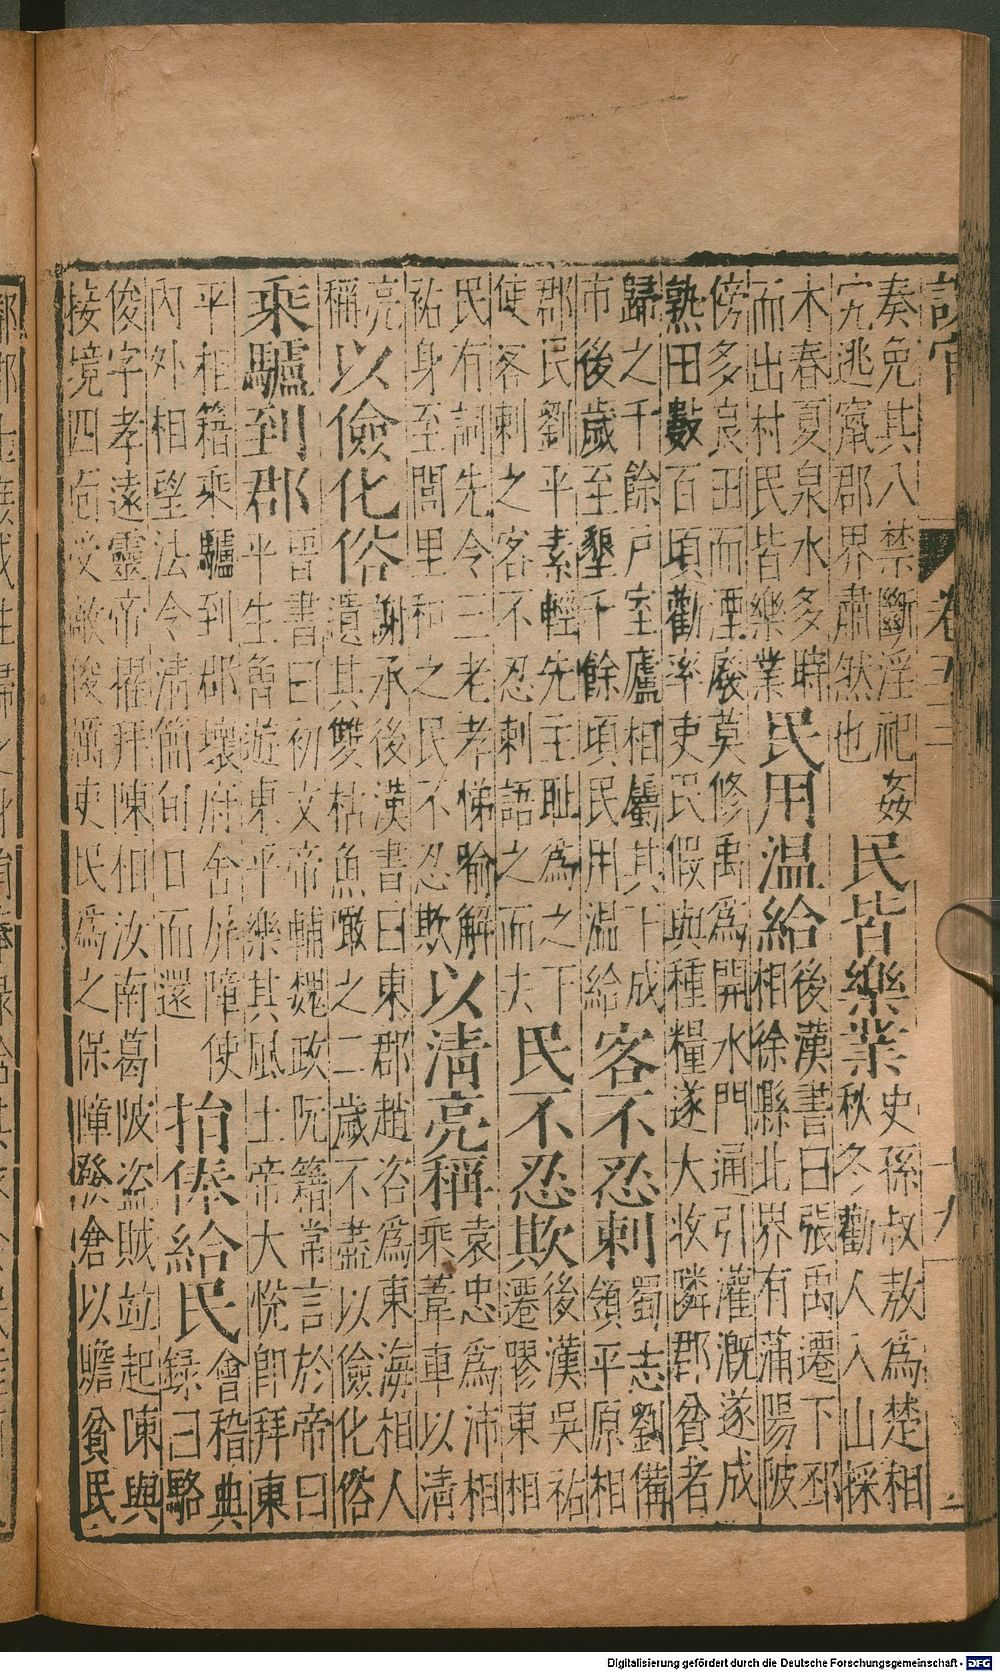 設官
奏免其八禁斷淫祀姦
宄逃竄郡界肅然也
民皆樂業
史孫叔敖為楚相
秋冬勸人入山採
木春夏泉水多時
而出村民皆樂業
民用温給
後漢書曰張禹遷下邳
相徐縣北界有蒲陽陂
傍多良田而湮廢莫修禹為開水門通引灌漑遂成
熟田數百頃勸率吏民假與種糧遂大收隣郡貧者
歸之千餘戶室廬相屬其下成
市後歲至墾千餘頃民用温給
客不忍刺
蜀志劉備
領平原相
郡民劉平素輕先主耻為之下
使客刺之客不忍刺語之而去
民不忍欺
後漢吳祐
遷膠東相
民有詞先令三老孝悌喻解
祐身至閭里和之民不忍欺
以清亮稱
袁忠為沛相
乘葦車以清
亮
稱
以儉化俗
謝承後漢書曰東郡趙咨為東海相人
遺其雙枯魚噉之二歲不盡以儉化俗
乘驢到郡
晋書曰初文帝輔魏政阮籍常言於帝曰
平生曾遊東平樂其風土帝大悅即拜東
平相籍乘驢到郡壞府舍屏障使
内外相望法令清簡旬日而還
捐俸給民
會稽典
錄曰駱
俊字孝遠靈帝擢拜陳相汝南葛陂盗賊竝起陳與
接境四面受敵俊厲吏民為之保障發倉以贍貧民
Digitalisierung gefördert durch die Deutsche Forschungsgemeinschaft - DFG